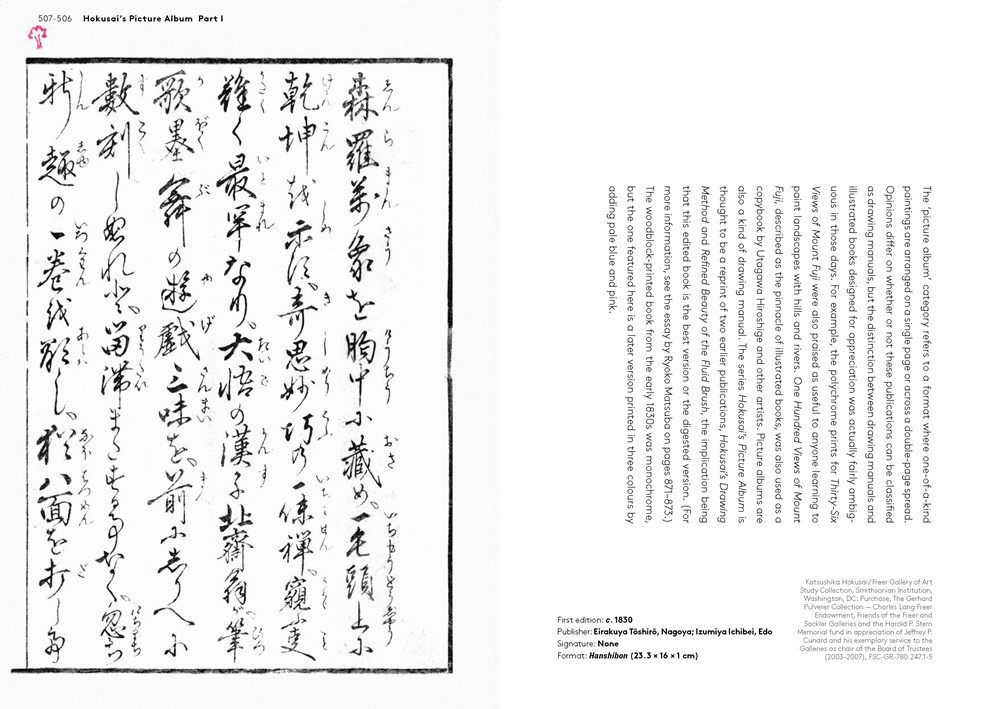 507-506 Hokusai's Picture Album Part I
森羅萬象を胸中に藏め、一毛頭上に
乾坤を示す、奇思妙巧の一味禅窺
難く最罕なり。大悟の漢子北齋翁が筆
歌墨舞の遊戲三昧を、前にしりへに
數刻し
新趣の一巻を 八面を打
The 'picture album' category refers to a format where one-of-a-kind
paintings are arranged on a single page or across a double-page spread.
Opinions differ on whether or not these publications can be classified
as drawing manuals, but the distinction between drawing manuals and
illustrated books designed for appreciation was actually fairly ambig-
uous in those days. For example, the polychrome prints for Thirty-Six
Views of Mount Fuji were also praised as useful to anyone learning to
paint landscapes with hills and rivers. One Hundred Views of Mount
Fuji, described as the pinnacle of illustrated books, was also used as a
copybook by Utagawa Hiroshige and other artists. Picture albums are
also a kind of drawing manual. The series Hokusai's Picture Album is
thought to be a reprint of two earlier publications, Hokusai's Drawing
Method and Refined Beauty of the Fluid Brush, the implication being
that this edited book is the best version or the digested version. (For
more information, see the essay by Ryoko Matsuba on pages 871–873.)
The woodblock-printed book from the early 1830s was monochrome,
but the one featured here is a later version printed in three colours by
adding pale blue and pink.
First edition: c. 1830
Publisher: Eirakuya Tōshirō, Nagoya; Izumiya Ichibei, Edo
Signature: None
Format: Hanshibon (23.3 × 16 × 1 cm)
Katsushika Hokusai / Freer Gallery of Art
Study Collection, Smithsonian Institution,
Washington, DC: Purchase, The Gerhard
Pulverer Collection — Charles Lang Freer
Endowment, Friends of the Freer and
Sackler Galleries and the Harold P. Stern
Memorial fund in appreciation of Jeffrey P.
Cunard and his exemplary service to the
Galleries as chair of the Board of Trustees
(2003–2007), FSC-GR-780.247.1-5